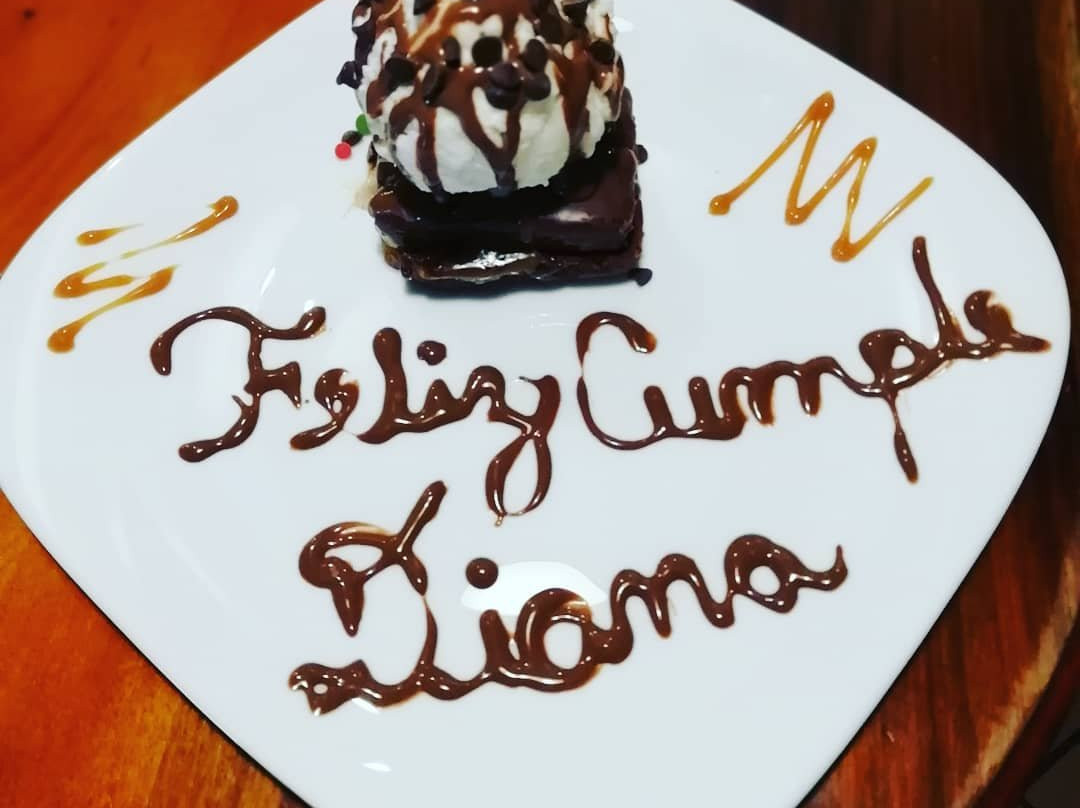 Feliz Cumple
Diana